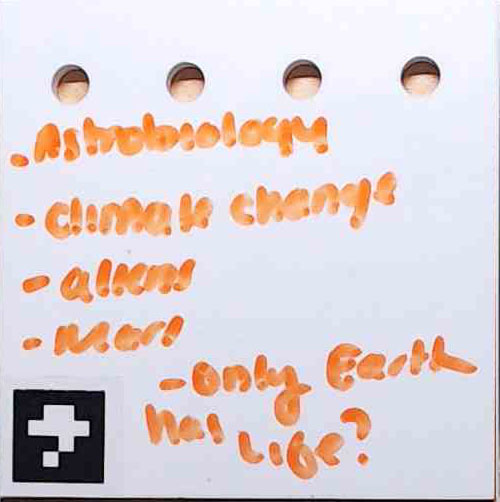 - Astrobiology
- climate change
- aliens
- Mars
- Only Earth
has Life?